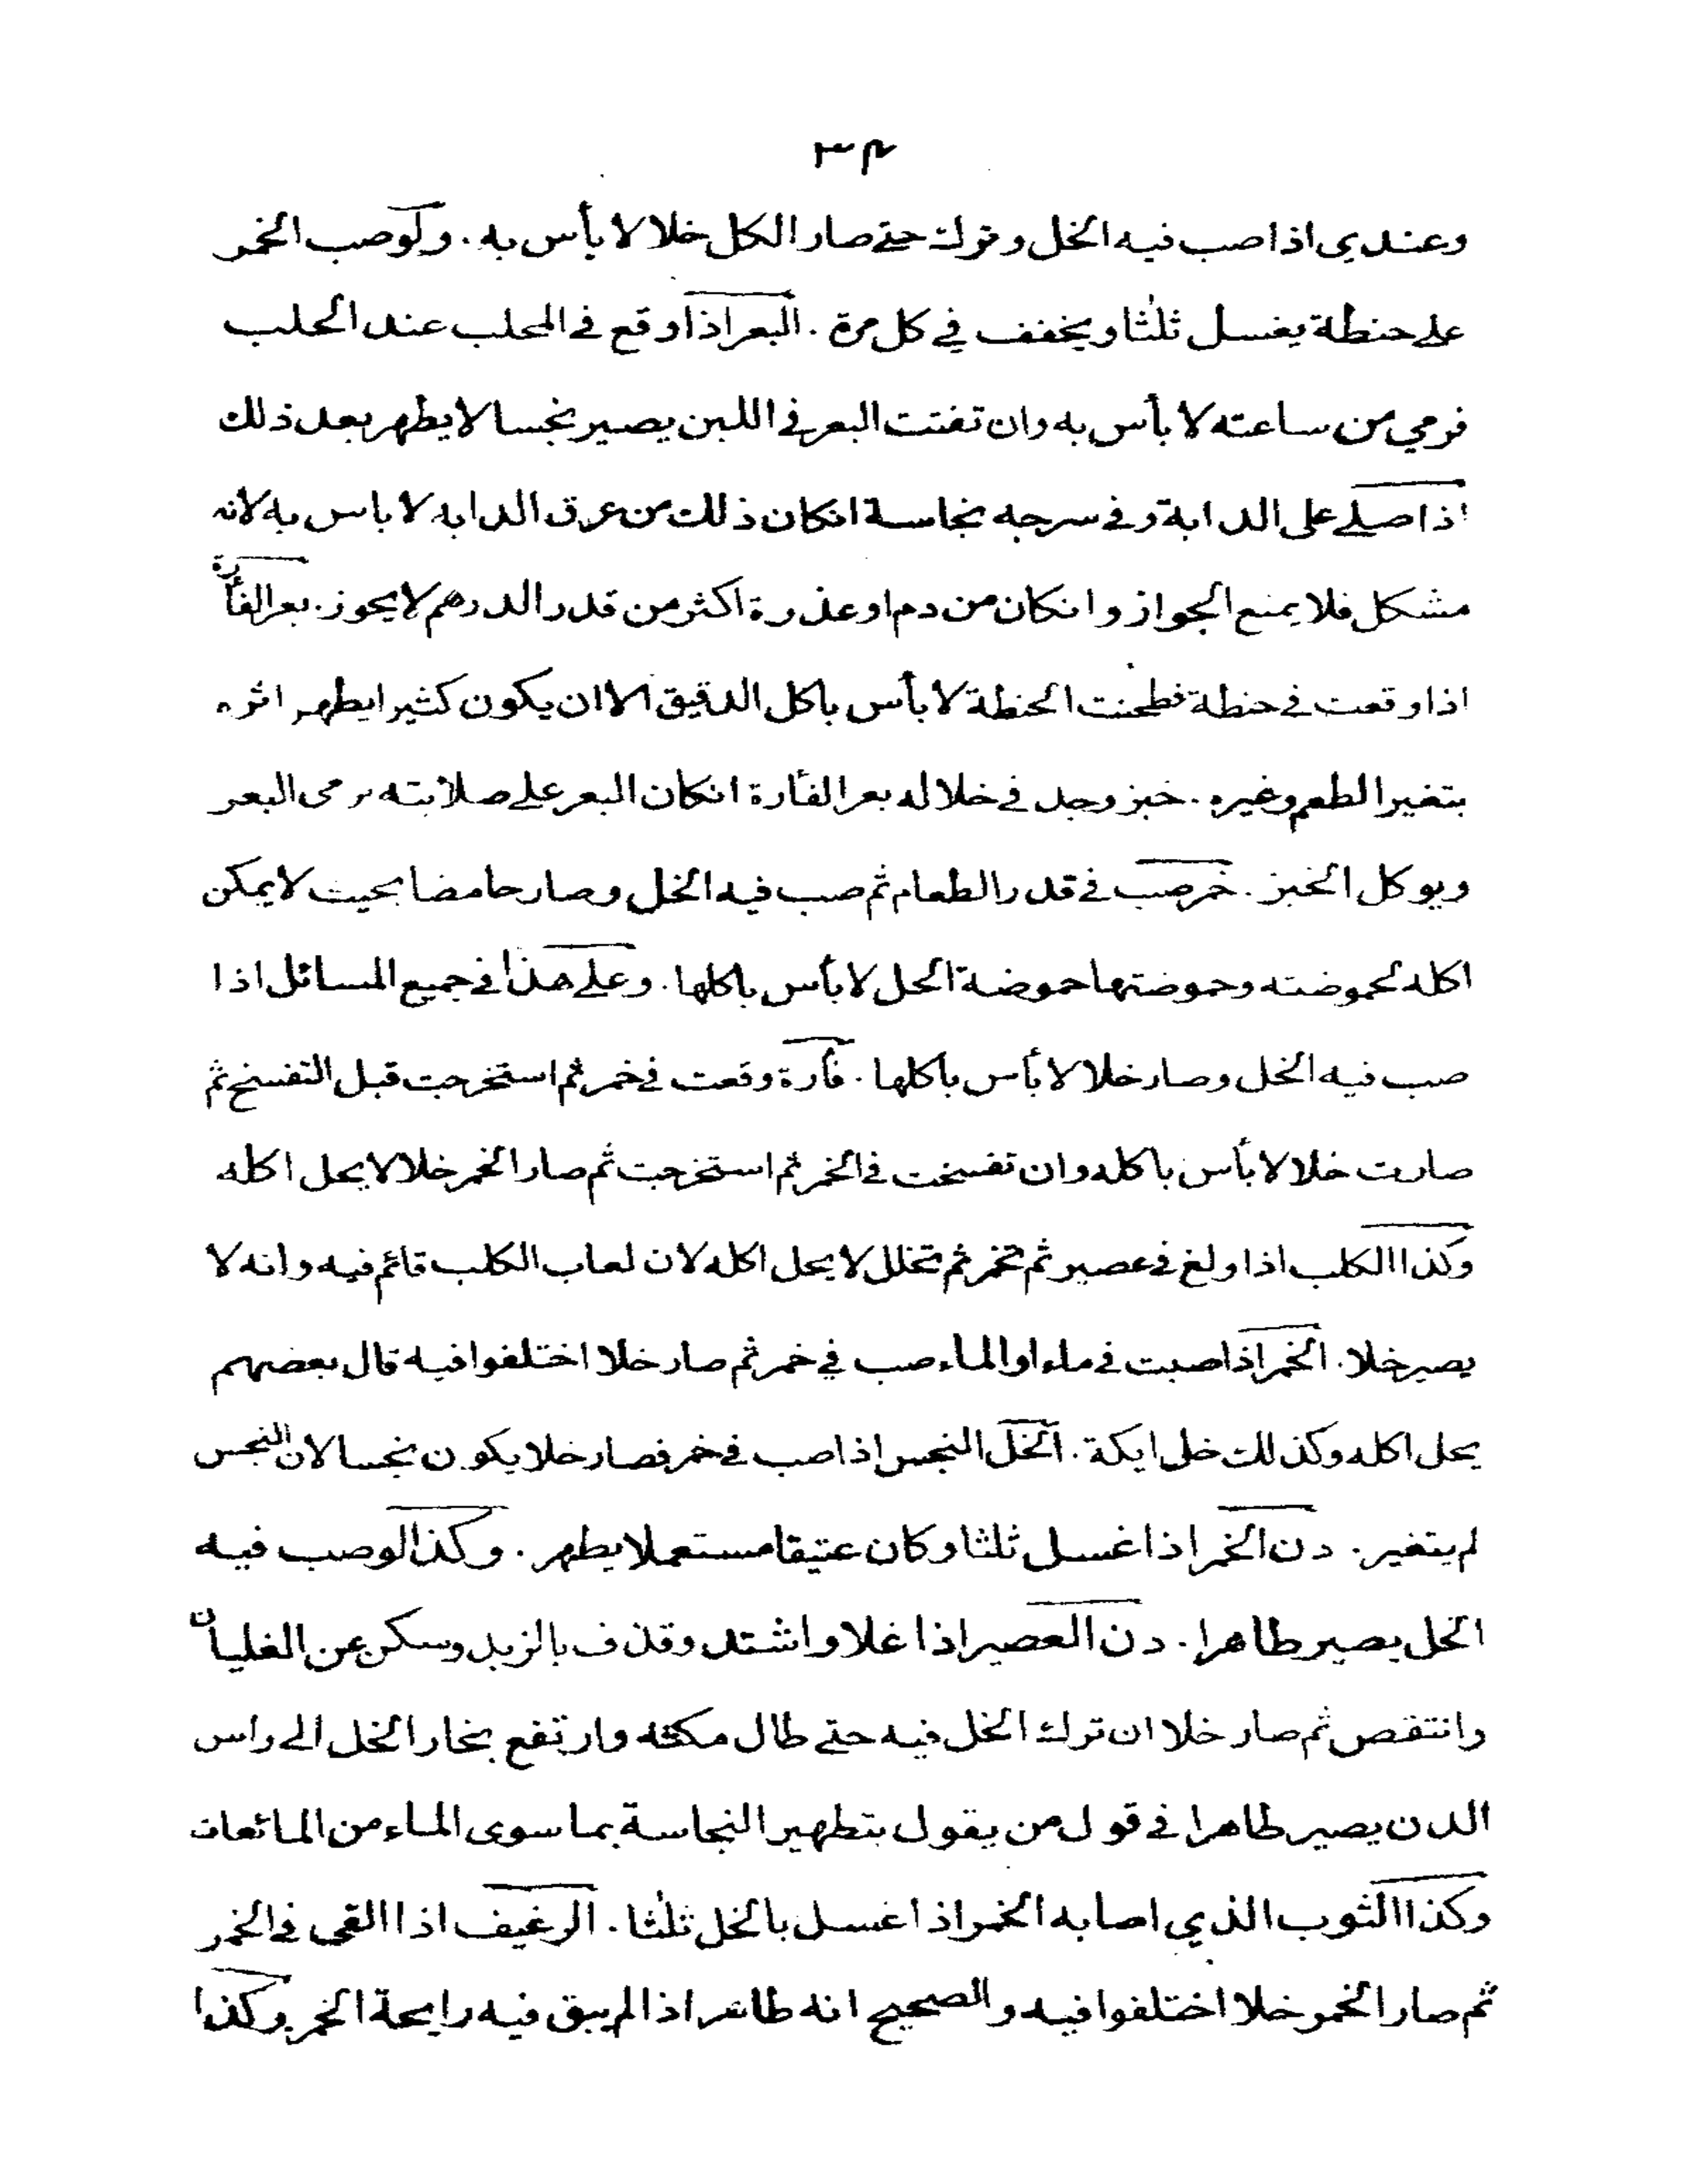 ٣٤
وعندي اذا صب فيه الخل وترك حتى صار الكل خلا لا بأس به . ولو صب الخمر
على حنطة يغسل ثلثا ويخفف في كل مرة . البعر اذا وقع في المحلب عند الحلب
فرمي من ساعته لا بأس به وان تفتت البعر في اللبن يصير نجسا لا يطهر بعد ذلك
اذا صلى على الدابة وفي سرجه نجاسة انكان ذلك من عرق الدابه لا باس به لانه
مشكل فلا يمنع الجواز وانكان من دم او عذرة اكثر من قدر الدرهم لا يجوز . بعر الفأرة
اذا وقعت في حنطة فطحنت الحنطة لا بأس باكل الدقيق الا ان يكون كثيرا يظهر اثره
بتغير الطعم وغيره . خبز وجد في خلاله بعر الفأرة انكان البعر على صلابته رمى البعر
ويوكل الخبز . خمر صب في قدر الطعام ثم صب فيه الخل وصار حامضا بحيث لا يمكن
اكله لحموضته وحموضتها حموضة الخل لا بأس باكلها . وعلى هذا في جميع المسائل اذا
صب فيه الخل وصار خلا لا بأس باكلها . فأرة وقعت في خمر ثم استخرجت قبل التفسخ ثم
صارت خلا لا بأس باكله وان تفسخت في الخمر ثم استخرجت ثم صار الخمر خلا لا يحل اكله
وكذا الكلب اذا ولغ في عصير ثم تخمر ثم تخلل لا يحل اكله لان لعاب الكلب قائم فيه وانه لا
يصير خلا . الخمر اذا صبت في ماء او الماء صب في خمر ثم صار خلا اختلفوا فيه قال بعضهم
يحل اكله وكذلك خل ايكة . الخل النجس اذا صب في خمر فصار خلا يكون نجسا لان النجس
لم يتغير . دن الخمر اذا غسل ثلثا وكان عتيقا مستعملا يطهر . وكذا لو صب فيه
الخل يصير طاهرا . دن العصير اذا غلا واشتد وقذف بالزبد وسكن عن الغليان
وانتقص ثم صار خلا ان ترك الخل فيه حتى طال مكثه وارتفع بخار الخل الى راس
الدن يصير طاهرا في قول من يقول بتطهير النجاسة بما سوى الماء من المائعات
وكذا الثوب الذي اصابه الخمر اذا غسل بالخل ثلثا . الرغيف اذا القى في الخمر
ثم صار الخمر خلا اختلفوا فيه والصحيح انه طاهر اذا لم يبق فيه رايحة الخمر وكذا